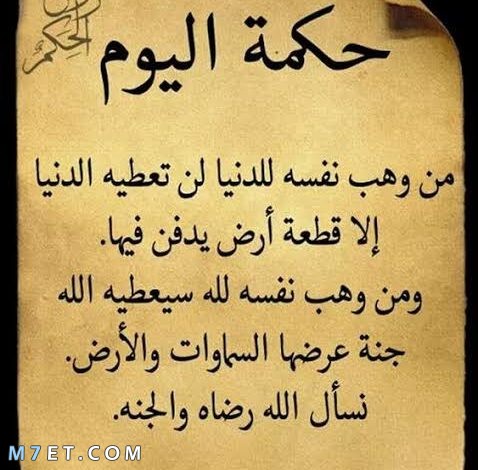 حكمة اليوم
من وهب نفسه للدنيا لن تعطيه الدنيا
إلا قطعة أرض يدفن فيها.
ومن وهب نفسه لله سيعطيه الله
جنة عرضها السماوات والأرض.
نسأل الله رضاه والجنه.
M7ET.COM